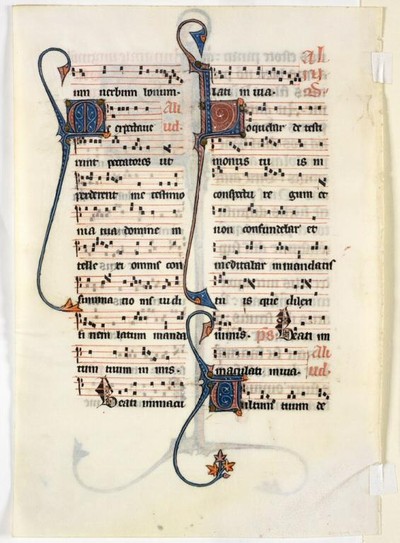 uerbum bonum.
Me expectaue Ali ud.
runt peccatores ut
perderent me testimo
nia tua domine in
telle xi omnis con
summa tio nis uidi
fi nem latum manda
tum tuum in mis.
Beati inmacu
lati in uia.
Loquebar de testi
moniis tu is in
conspectu re gum et
non confundebar et
meditabar in mandatis
tu is que dilexi
nimis. ps. Beati im
maculati in uia. Ali ud.
Uultum tuum de